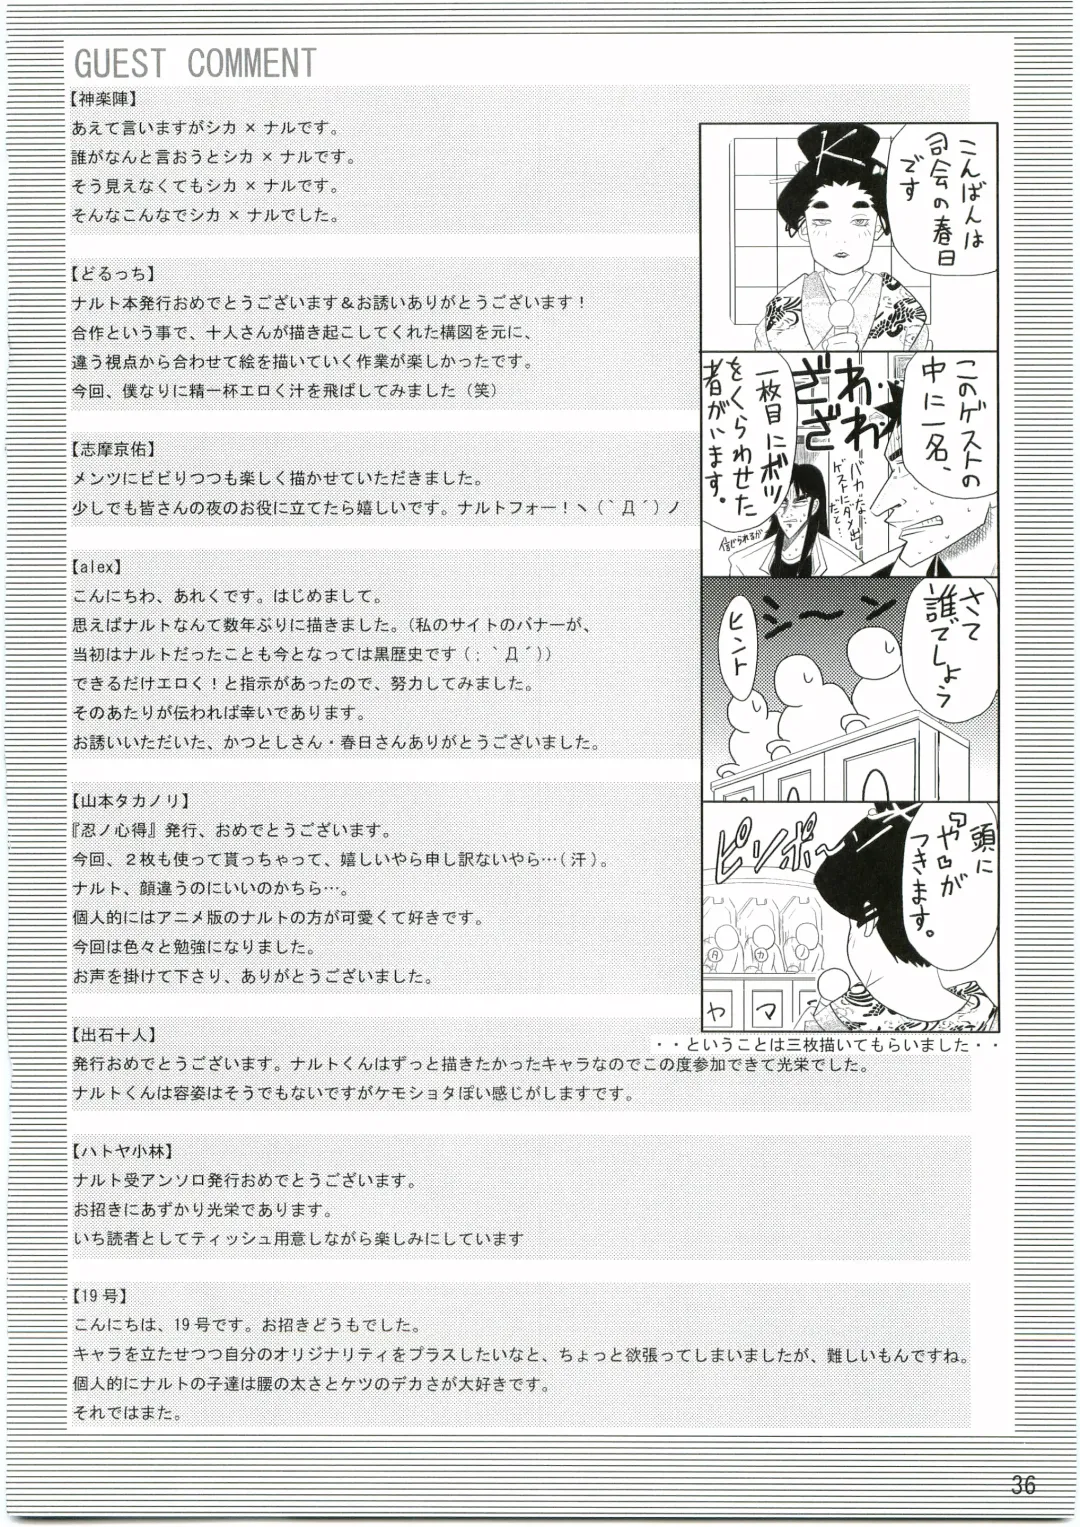 GUEST COMMENT
【神楽陣】
あえて言いますがシカ×ナルです。
誰がなんと言おうとシカ×ナルです。
そう見えなくてもシカ×ナルです。
そんなこんなでシカ×ナルでした。
【どるっち】
ナルト本発行おめでとうございます＆お誘いありがとうございます！
合作という事で、十人さんが描き起こしてくれた構図を元に、
違う視点から合わせて絵を描いていく作業が楽しかったです。
今回、僕なりに精一杯エロく汁を飛ばしてみました（笑）
【志摩京佑】
メンツにビビりつつも楽しく描かせていただきました。
少しでも皆さんの夜のお役に立てたら嬉しいです。ナルトフォー！ヽ（｀Д´）ノ
【alex】
こんにちわ、あれくです。はじめまして。
思えばナルトなんて数年ぶりに描きました。(私のサイトのバナーが、
当初はナルトだったことも今となっては黒歴史です（；｀Д´))
できるだけエロく！と指示があったので、努力してみました。
そのあたりが伝われば幸いであります。
お誘いいただいた、かつとしさん・春日さんありがとうございました。
【山本タカノリ】
『忍ノ心得』発行、おめでとうございます。
今回、２枚も使って貰っちゃって、嬉しいやら申し訳ないやら…(汗)。
ナルト、顔違うのにいいのかちら…。
個人的にはアニメ版のナルトの方が可愛くて好きです。
今回は色々と勉強になりました。
お声を掛けて下さり、ありがとうございました。
【出石十人】
発行おめでとうございます。ナルトくんはずっと描きたかったキャラなのでこの度参加できて光栄でした。
ナルトくんは容姿はそうでもないですがケモショタぽい感じがしますです。
【ハトヤ小林】
ナルト受アンソロ発行おめでとうございます。
お招きにあずかり光栄であります。
いち読者としてティッシュ用意しながら楽しみにしています
【19号】
こんにちは、19号です。お招きどうもでした。
キャラを立たせつつ自分のオリジナリティをプラスしたいなと、ちょっと欲張ってしまいましたが、難しいもんですね。
個人的にナルトの子達は腰の太さとケツのデカさが大好きです。
それではまた。
こんばんは
司会の春日
です
K
このゲストの
中に一名、
一枚目にボツ
をくらわせた
者がいます。
ざわ・
ざわ・
バカな…
ゲストにダメ出し
だて…
信じられるか
さて
誰でしょう
シ〜ン
ヒント
頭に
『ヤ』が
つきます。
ピンポ〜ン
タ
カ
ノ
ヤ
マ
・・ということは三枚描いてもらいました・・
36